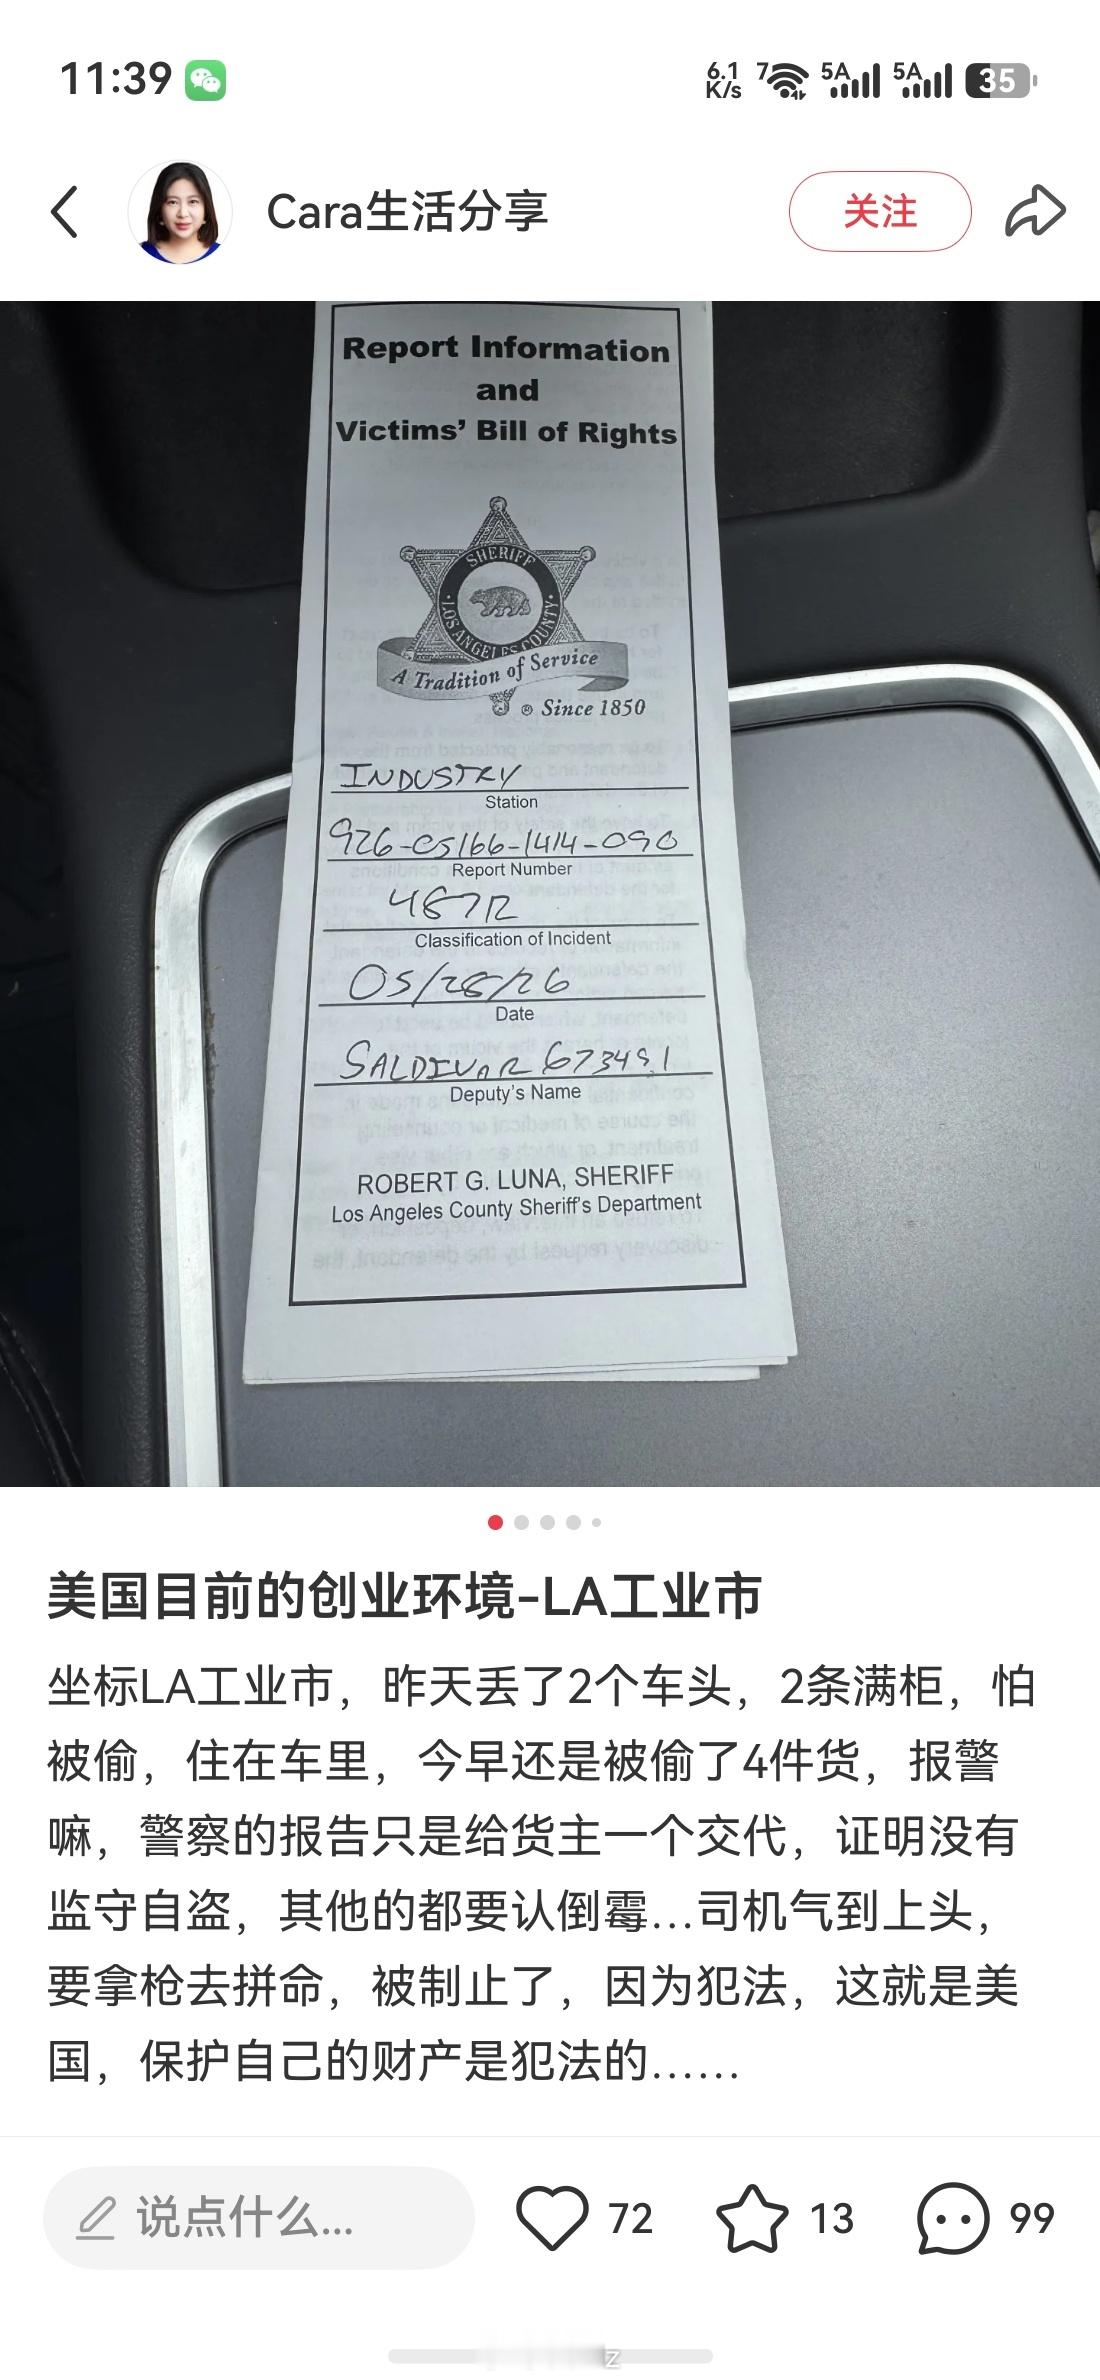 11:39
6.1
K/s
7
5A
5A
35
Cara生活分享
关注
Report Information
and
Victims' Bill of Rights
SHERIFF
LOS ANGELES COUNTY
A Tradition of Service
® Since 1850
INDUSTRY
Station
926-05166-1414-090
Report Number
487R
Classification of Incident
05/28/26
Date
SALDIVAR 673491
Deputy's Name
ROBERT G. LUNA, SHERIFF
Los Angeles County Sheriff's Department
美国目前的创业环境-LA工业市
坐标LA工业市，昨天丢了2个车头，2条满柜，怕
被偷，住在车里，今早还是被偷了4件货，报警
嘛，警察的报告只是给货主一个交代，证明没有
监守自盗，其他的都要认倒霉...司机气到上头，
要拿枪去拼命，被制止了，因为犯法，这就是美
国，保护自己的财产是犯法的……
说点什么...
72
13
99
z